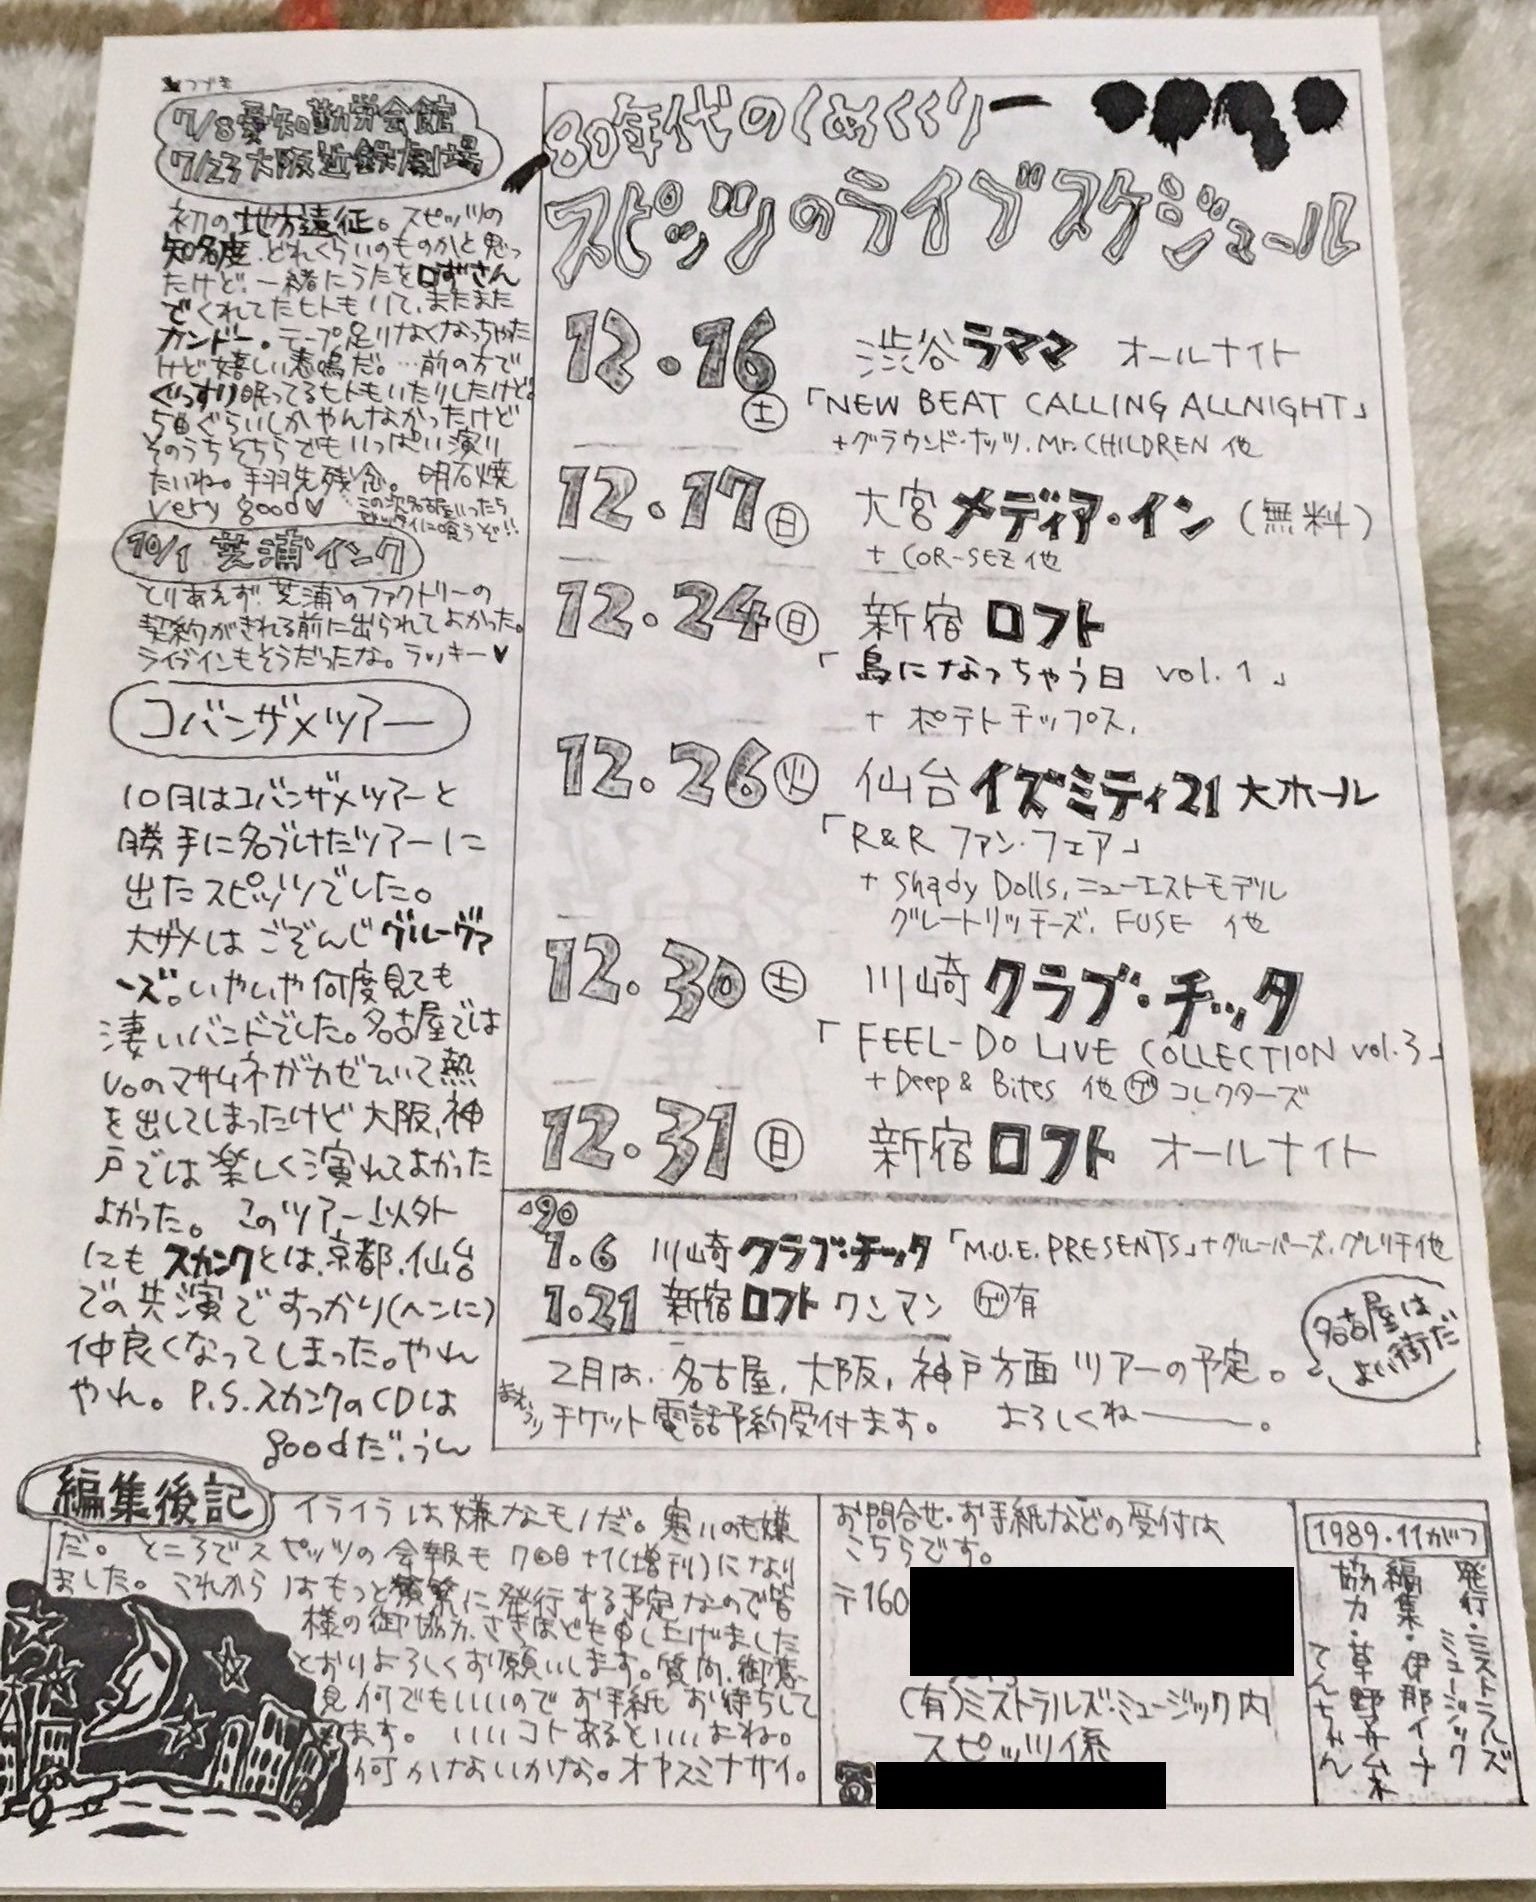 つづき
7/8愛知勤労会館
7/23大阪近鉄劇場
初の地方遠征。スピッツの
知名度、どれくらいのものかと思っ
たけど、一緒にうたを口ずさん
でくれてたヒトもいて、またまた
カンドー。テープ足りなくなっちゃた
けど嬉しい悲鳴だ。…前の方で
ぐっすり眠ってるヒトもいたりしたけど。
5曲ぐらいしかやんなかったけど
そのうちそちらでもいっぱい演り
たいね。手羽先残念。明石焼
very good♥
この次名古屋いったら
ゼッタイに喰うぞ!!
10/1 芝浦インク
とりあえず、芝浦のファクトリーの
契約がきれる前に出られてよかった。
ライブインもそうだったな。ラッキー♥
コバンザメツアー
10月はコバンザメツアーと
勝手に名づけたツアーに
出たスピッツでした。
大ザメは ごぞんじグルーヴァ
ーズ。いやいや何度見ても
凄いバンドでした。名古屋では
Vo.のマサムネがカゼひいて熱
を出してしまったけど大阪、神
戸では楽しく演れてよかった
よかった。このツアー以外
にもスカンクとは、京都、仙台
での共演ですっかり(ヘンに)
仲良くなってしまった。やれ
やれ。P.S.スカンクのCDは
goodだ、うん
80年代のしめくくりー
スピッツのライブスケジュール
12.16㊏ 渋谷ラママ オールナイト
「NEW BEAT CALLING ALLNIGHT」
+グラウンド・ナッツ、Mr.CHILDREN 他
12.17㊐ 大宮メディア・イン(無料)
+ COR-SEZ 他
12.24㊐ 新宿ロフト
「鳥になっちゃう日 vol.1」
+ ポテトチップス、
12.26㊋ 仙台イズミティ21 大ホール
「R&R ファン・フェア」
+ Shady Dolls、ニューエストモデル
グレートリッチーズ、FUSE 他
12.30㊏ 川崎クラブ・チッタ
「FEEL-DO LIVE COLLECTION vol.3」
+ Deep & Bites 他 ゲ コレクターズ
12.31㊐ 新宿ロフト オールナイト
'90
1.6 川崎クラブ・チッタ「M.U.E. PRESENTS」+グルーパーズ、グレリチ他
1.21 新宿ロフト ワンマン ゲ有
2月は、名古屋、大阪、神戸方面ツアーの予定。
名古屋は
よい街だ
まえうりチケット電話予約受付ます。 よろしくねー。
編集後記
イライラは嫌なモノだ。寒いのも嫌
だ。ところでスピッツの会報も7回目+1(増刊)になり
ました。これからはもっと頻繁に発行する予定なので皆
様の御協力、さきほども申し上げました
とおりよろしくお願いします。質問、御意
見何でもいいのでお手紙お待ちして
ます。いいコトあるといいよね。
何かないかな。オヤスミナサイ。
お問合せ・お手紙などの受付は
こちらです。
〒160
(有)ミストラルズ・ミュージック内
スピッツ係
1989.11がつ
発行・ミストラルズ
ミュージック
編集・伊那イーナ
協力・草野サム
てんちょん